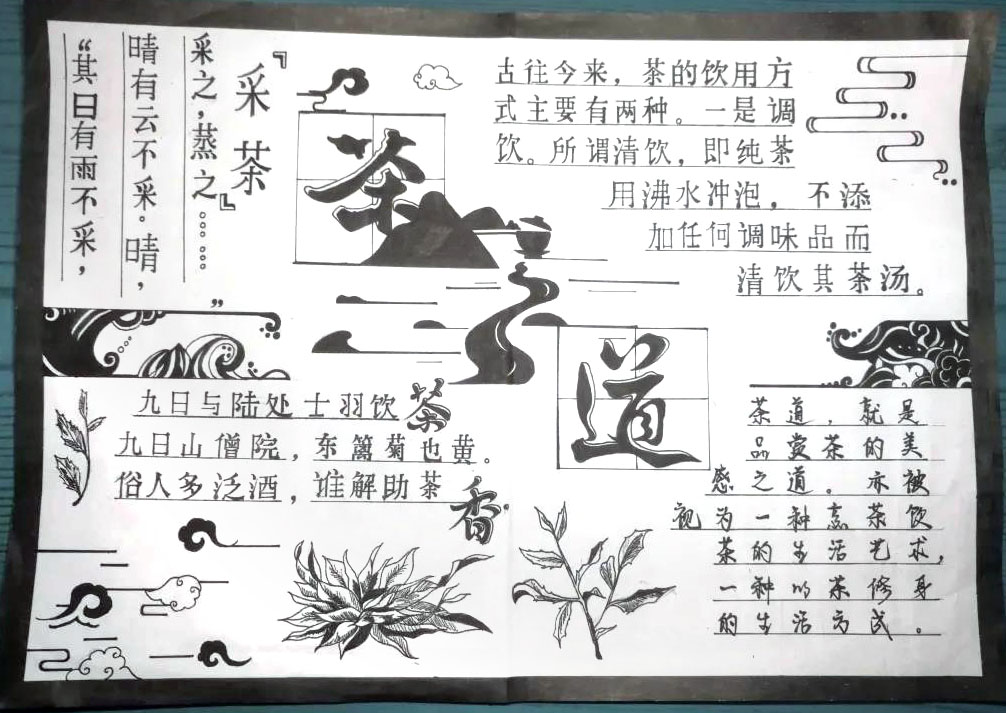 『采茶』
“其日有雨不采，
晴有云不采。晴，
采之，蒸之。。。。。。”
茶
道
古往今来，茶的饮用方
式主要有两种。一是调
饮。所谓清饮，即纯茶
用沸水冲泡，不添
加任何调味品而
清饮其茶汤。
九日与陆处士羽饮茶
九日山僧院，东篱菊也黄。
俗人多泛酒，谁解助茶香
茶道，就是
品赏茶的美
感之道。亦被
视为一种烹茶饮
茶的生活艺术，
一种以茶修身
的生活方式。